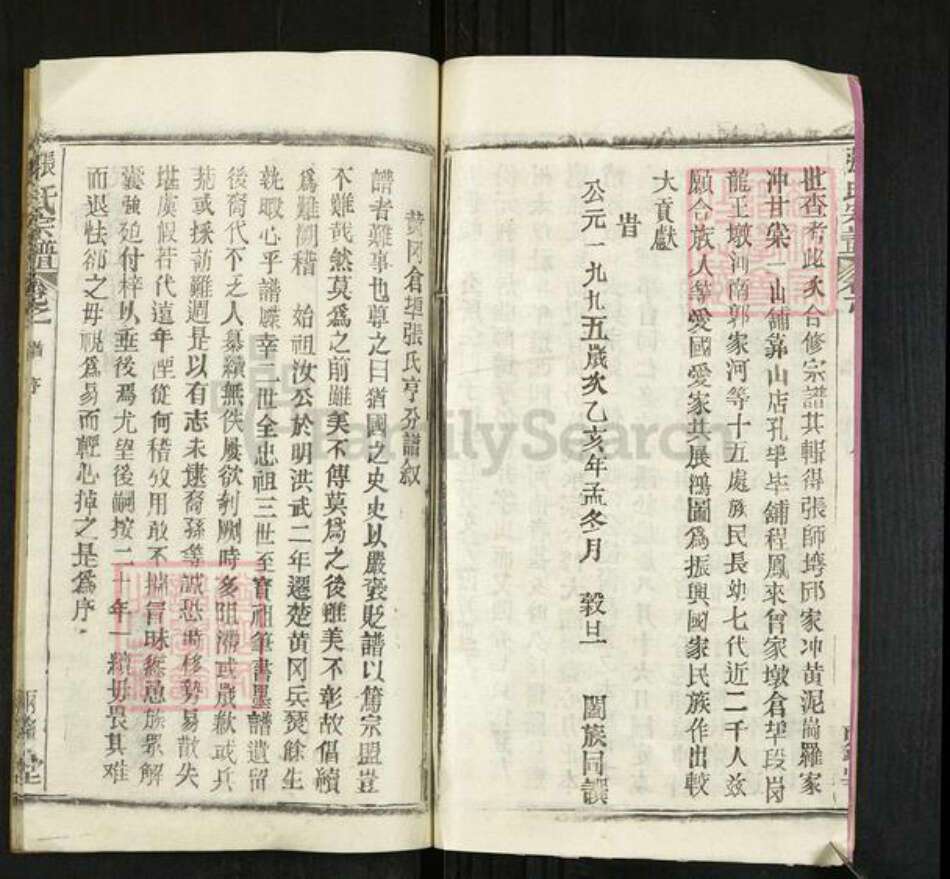 世查考此次合修宗譜其輯得張師塆邱家冲黄泥崗羅家
冲甘棠二山鋪靠山店孔埠毕鋪程鳳來曾家墩倉埠段岗
龍王墩河南郭家河等十五處族民長幼七代近二千人兹
願合族人等愛國愛家共展鴻圖為振興國家民族作出較
大貢獻
旹
公元一九九五歲次乙亥年孟冬月 穀旦 闔族同譔
黄冈倉埠張氏亨分譜叙
譜者難事也尊之曰猶國之史史以嚴褒贬譜以篤宗盟豈
不難哉然莫爲之前雖美不傳莫爲之後雖美不彰故倡續
爲難 稽 始祖汝公於明洪武二年遷楚黄冈兵燹餘生
孰暇心乎譜牒幸二世全忠祖三世至寳祖筆書墨譜遺留
後裔代不乏人纂續無佚屢欲剞劂時多阻滯或歲歉或兵
荒或採訪難週是以有志未逮裔孫等誠恐時移勢易散失
堪虞假若代遠年湮從何稽攷用敢不揣冒昧 族眾解
囊強廹付梓以垂後焉尤望後嗣按二十年一續毋畏其难
而退怯郤之毋視爲易而輕心掉之是爲序
張氏宗譜 卷之一 譜序
FamilySearch